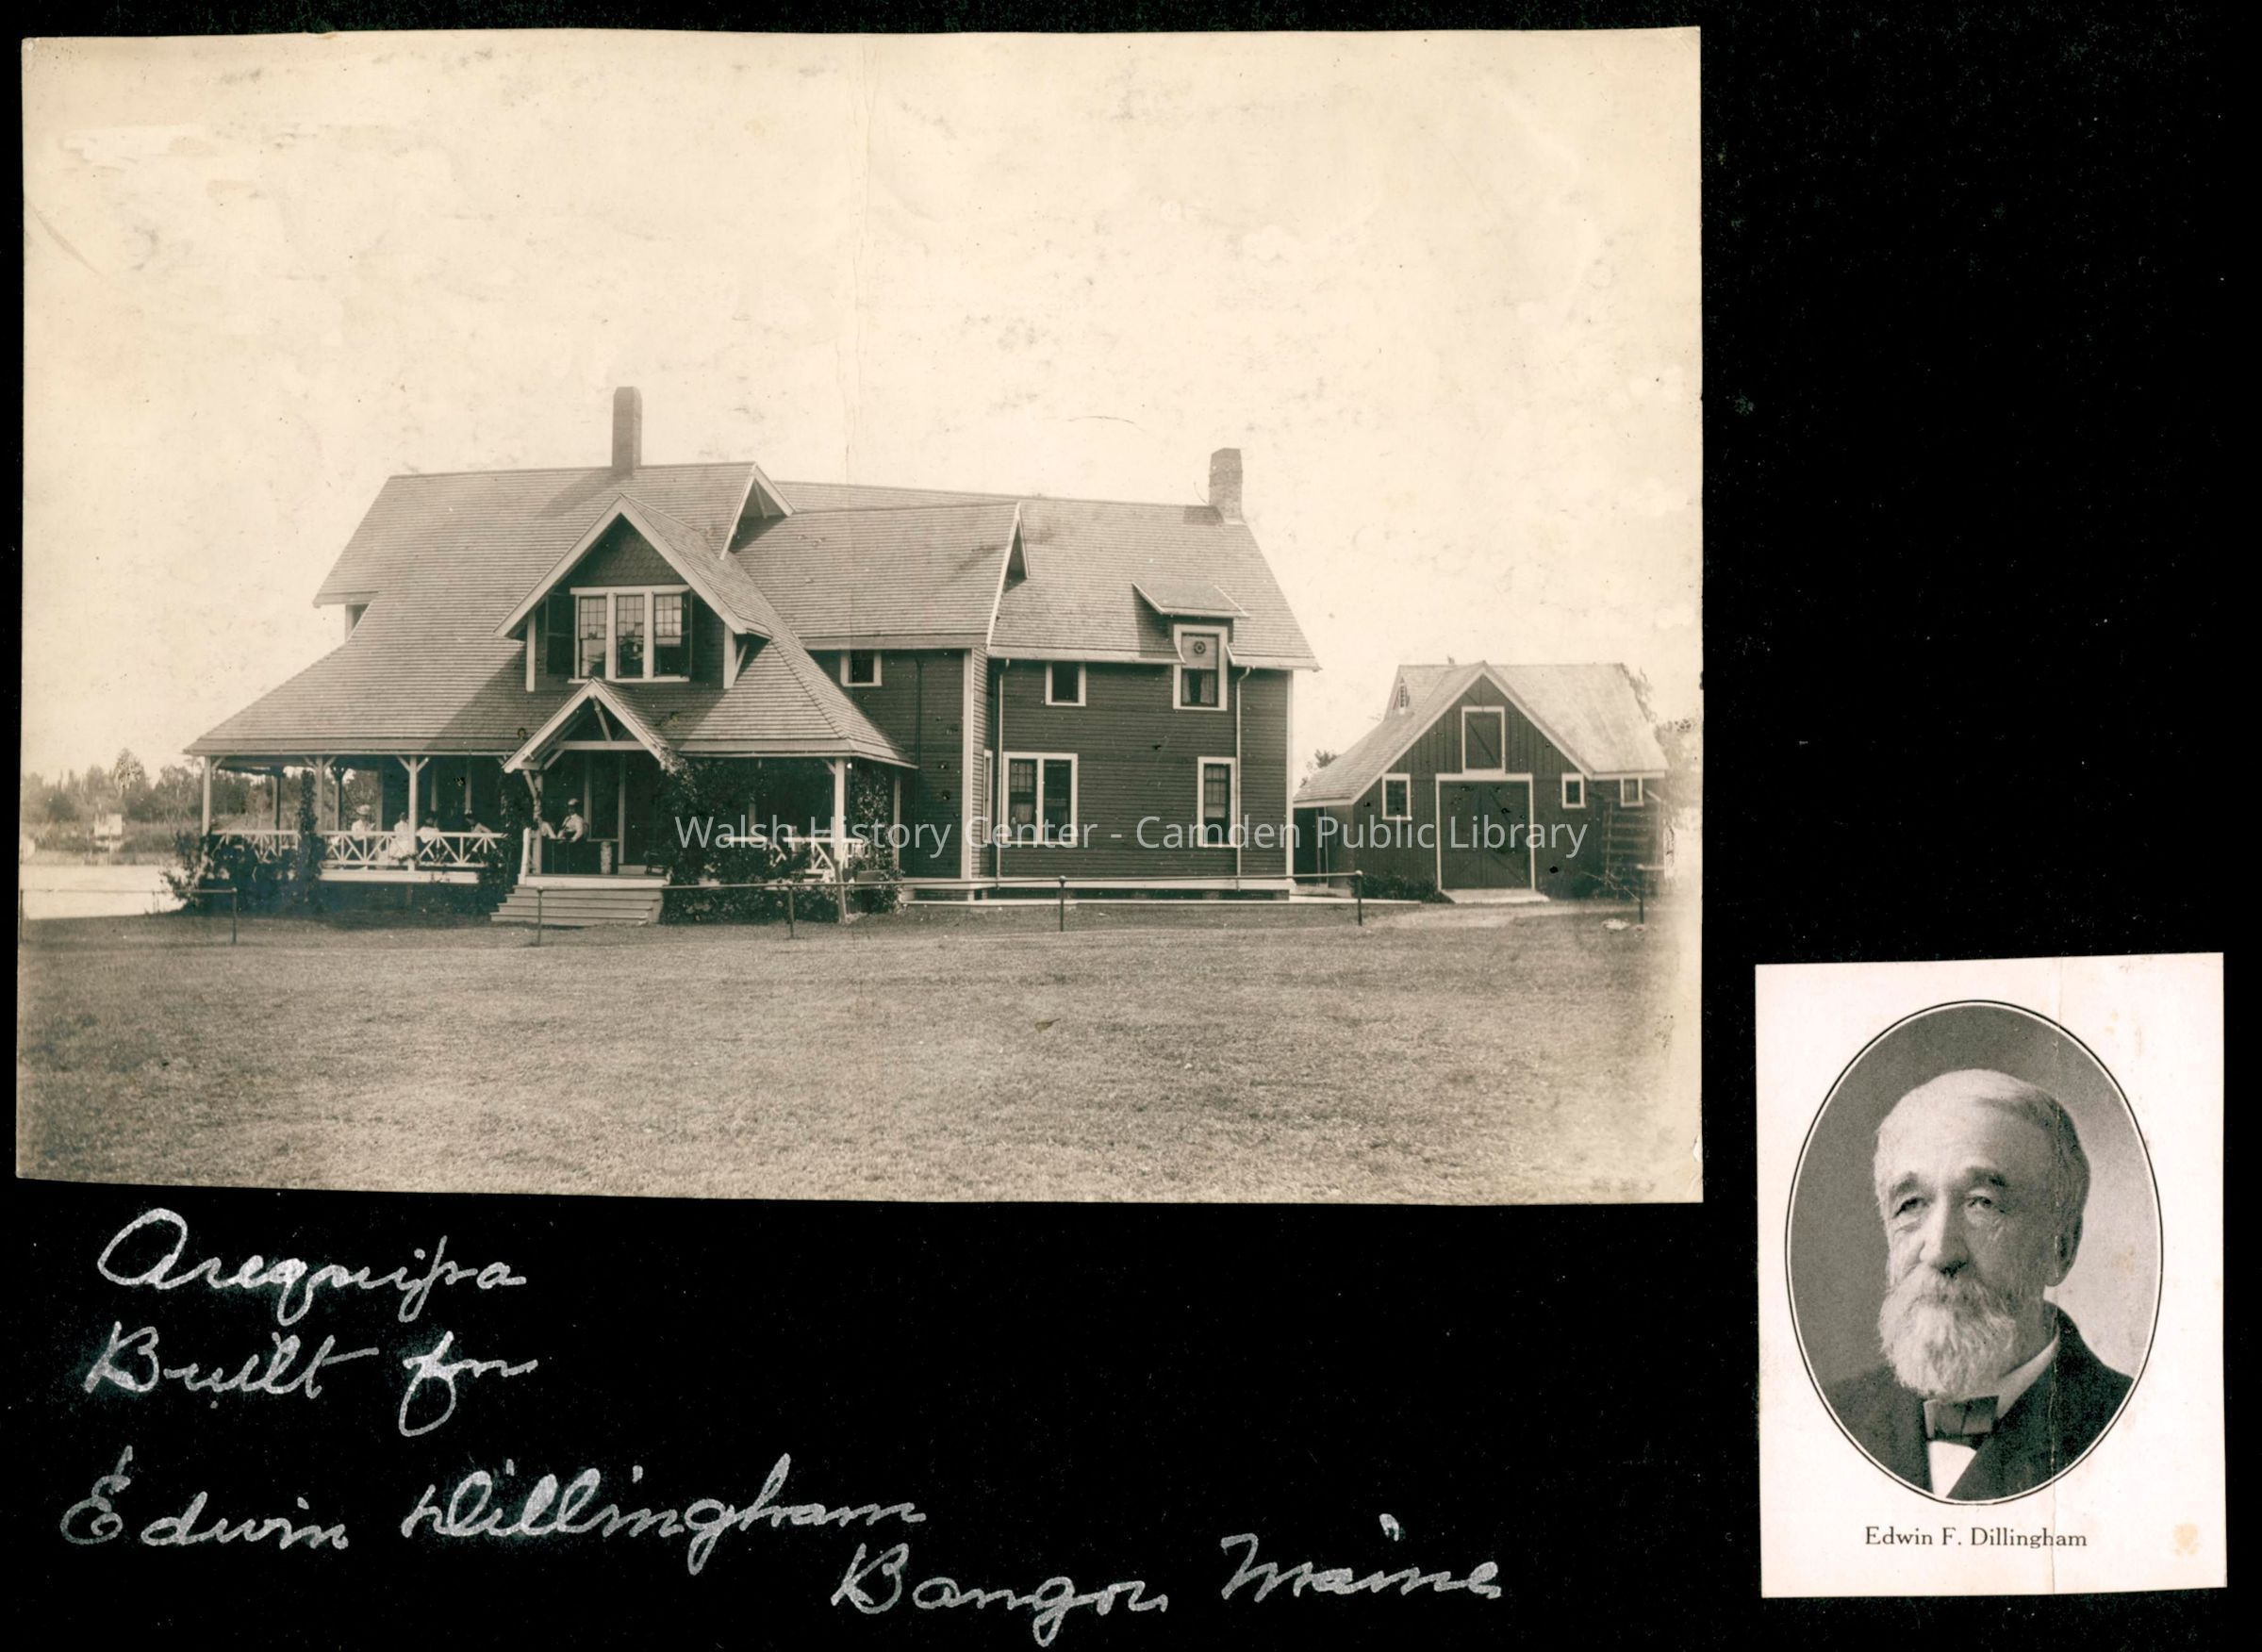 Walsh History Center - Camden Public Library
Arequipa
Built for
Edwin Dillingham
Bangor Maine
Edwin F. Dillingham